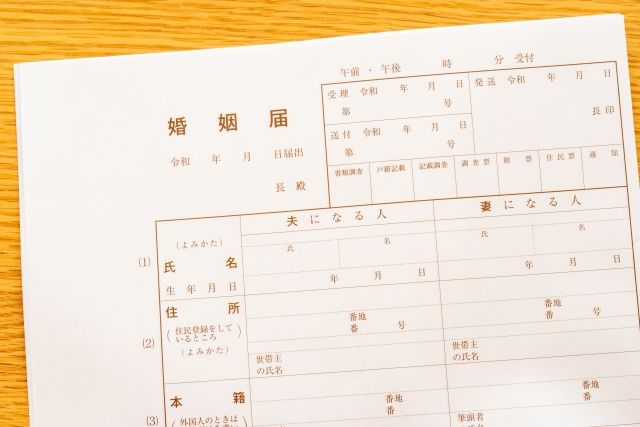 午前・午後 時 分 受付
婚姻届
令和 年 月 日届出
長殿
受理 令和 年 月 日
第 号
発送 令和 年 月 日
長印
送付 令和 年 月 日
第 号
書類調査 戸籍記載 記載調査 調査票 附票 住民票 通知
夫になる人 妻になる人
(よみかた)
氏 名 氏 名
(1) 氏名
生年月日 年 月 日 年 月 日
住所
(住民登録をして
いるところ)
(よみかた)
(2)
番地
番 号
番地
番 号
世帯主
の氏名
世帯主
の氏名
本籍
(3) (外国人のときは
番地
番
番地
番
筆頭者